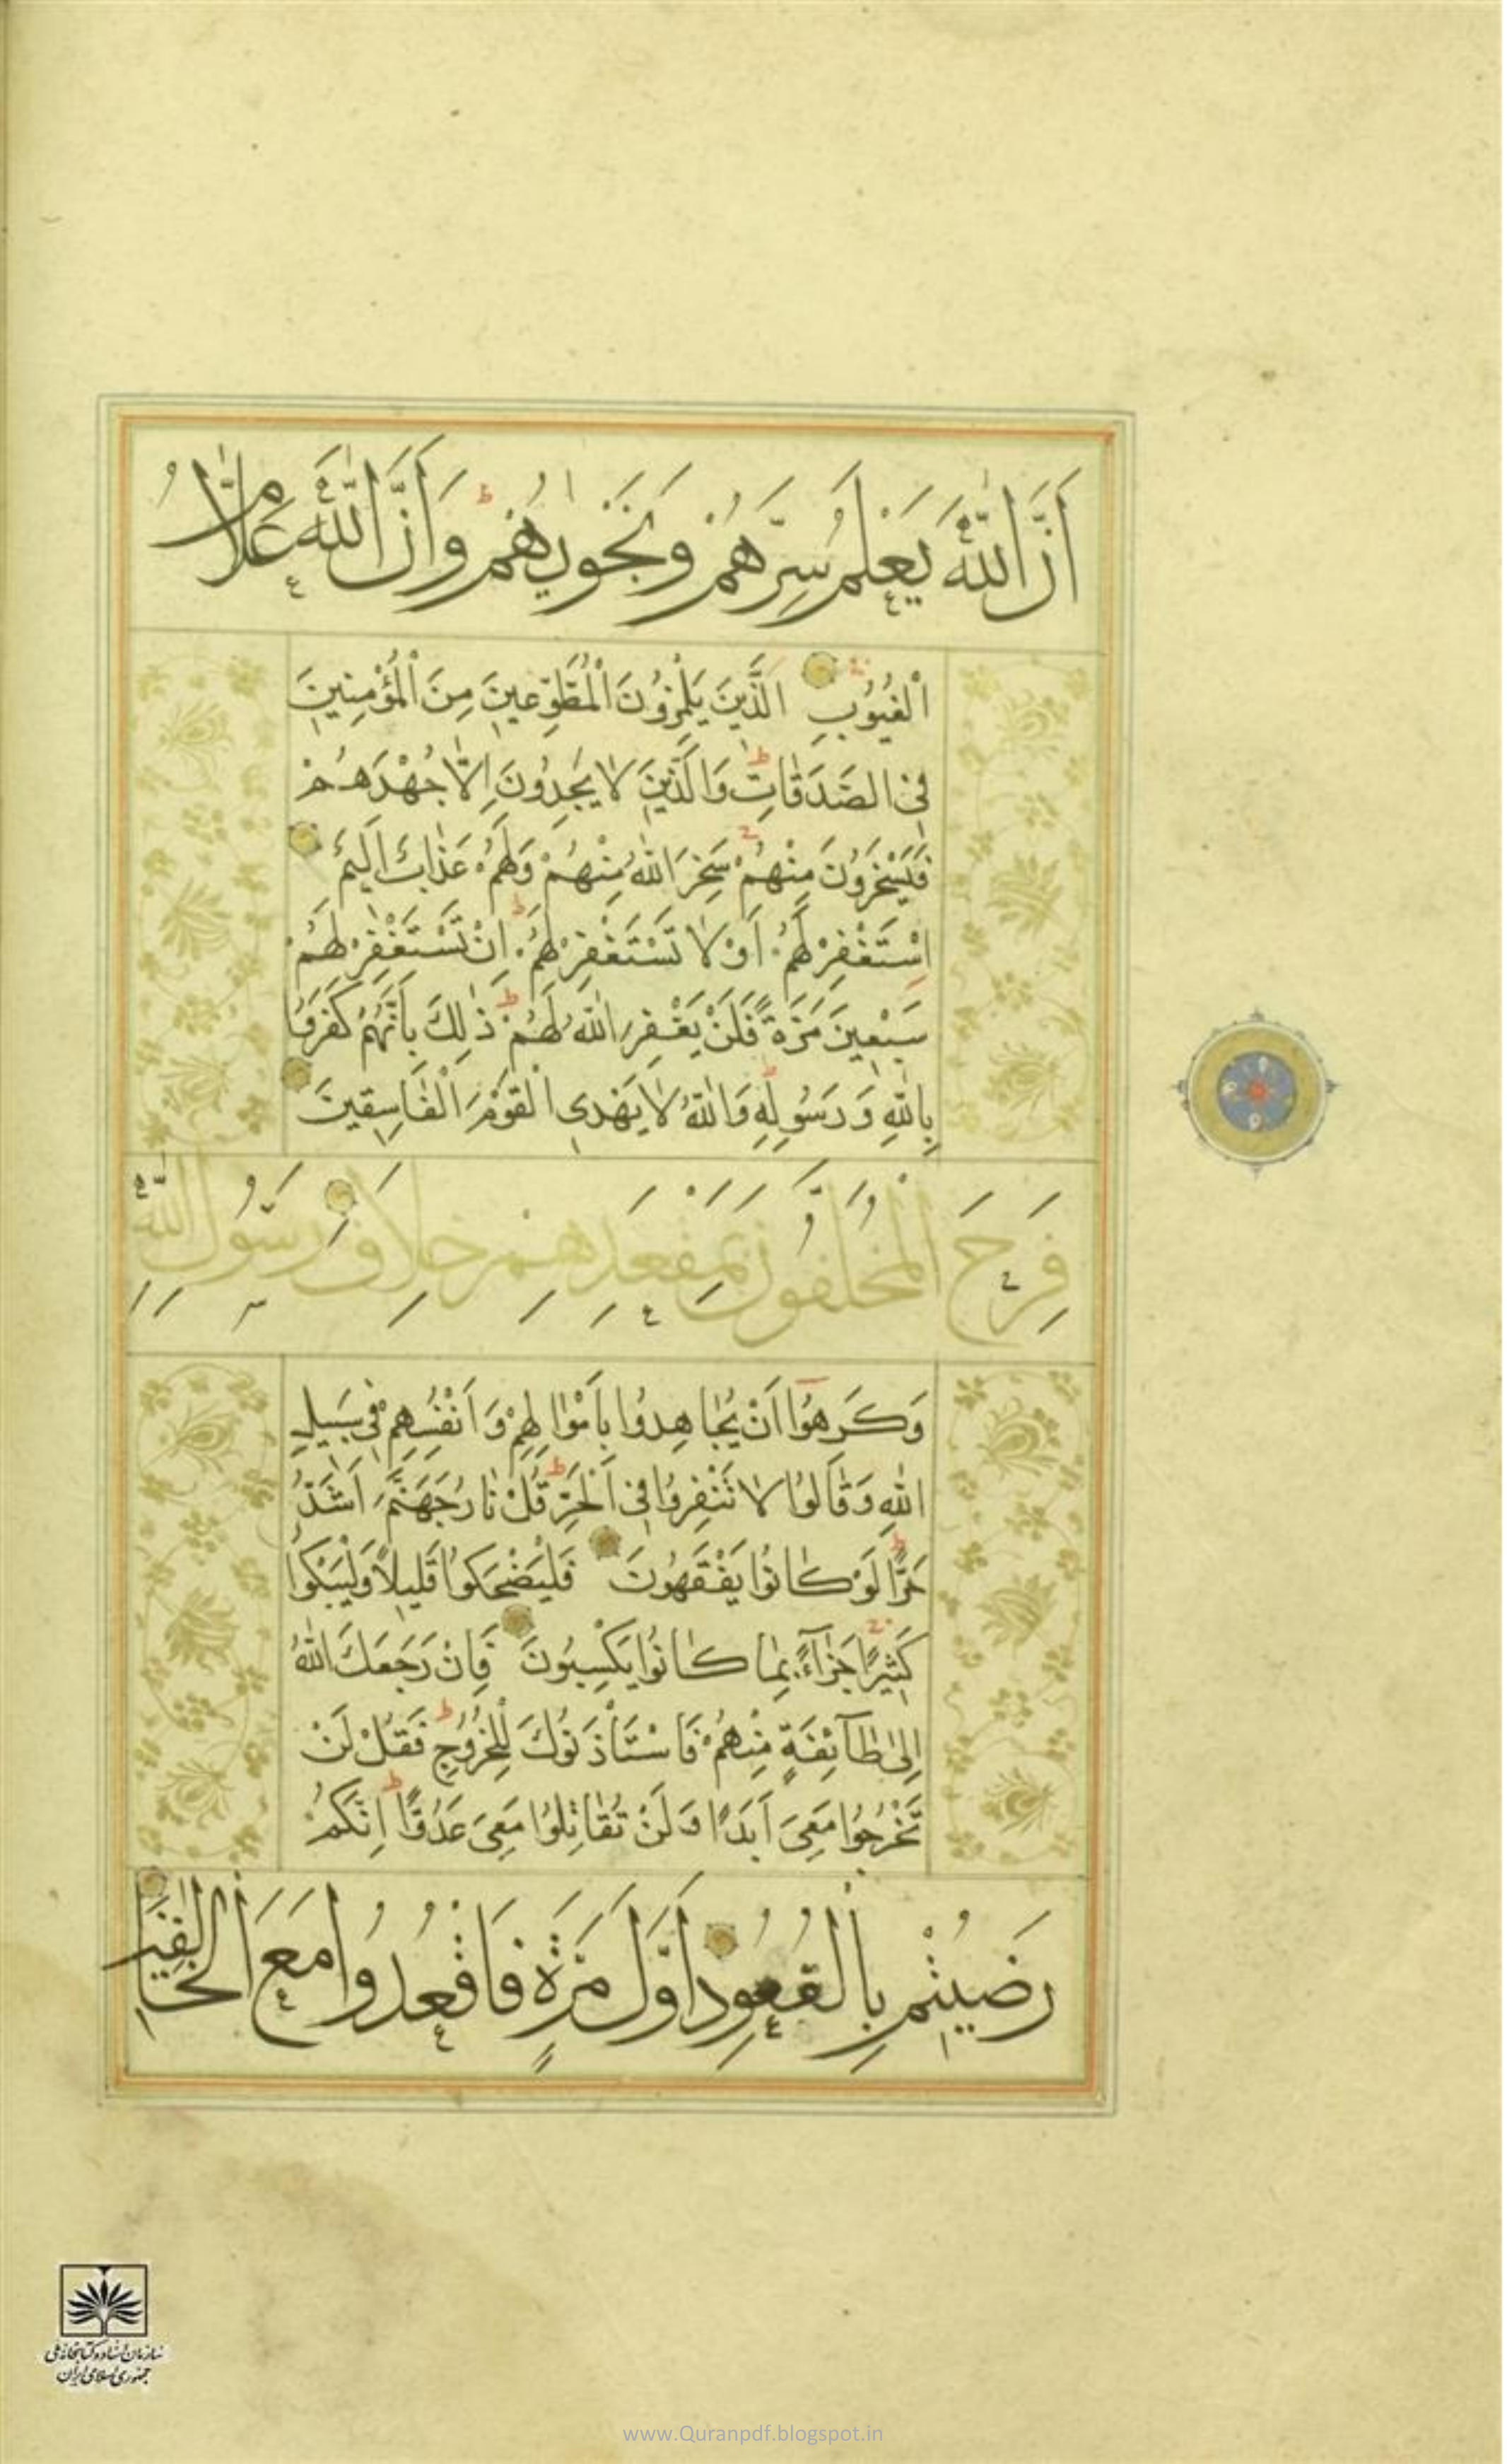 اَنَّ اللّٰهَ يَعْلَمُ سِرَّهُمْ وَنَجْوٰيهُمْ ط وَاَنَّ اللّٰهَ عَلَّامُ
الْغُيُوُبِ الَّذَيِنَ يَلْمِزوُنَ الْمُطَّوِّعيِنَ مِنَ الْمُؤْمِنيِنَ
فىِ الصَّدَقٰاتِ ط وَالَّذيِنَ لاٰ يَجِدوُنَ اِلاّٰ جُهْدَهُمْ
فَيَسْخَروُنَ مِنْهُمْ سَخِرَ اللّٰهُ مِنْهُمْ وَلَهُمْ عَذٰابٌ اَليِمٌ
اِسْتَغْفِرْ لَهُمْ اَوْ لاٰ تَسْتَغْفِرْ لَهُمْ ط اِنْ تَسْتَغْفِرْ لَهُمْ
سَبْعيِنَ مَرَّةً فَلَنْ يَغْفِرَ اللّٰهُ لَهُمْ ط ذٰلِكَ بِاَنَّهُمْ كَفَروُا
بِاللّٰهِ وَ رَسُولِهِ وَاللّٰهُ لاٰ يَهْدىِ الْقَوْمَ الْفٰاسِقيِنَ
فَرِحَ الْمُخَلَّفُونَ بِمَقْعَدِهِمْ خِلَافَ رَسُولِ اللّٰهِ
وَكَرِهوُٓا اَنْ يُجٰاهِدوُا بِاَمْوٰالِهِمْ وَ اَنْفُسِهِمْ فىِ سَبيِلِ
اللّٰهِ وَ قٰالوُا لاٰ تَنْفِروُا فىِ الْحَرِّ ط قُلْ نٰارُ جَهَنَّمَ اَشَدُّ
حَرًّا ط لَوْ كٰانوُا يَفْقَهوُنَ فَلْيَضْحَكوُا قَليِلاً وَلْيَبْكوُا
كَثيِرًا جَزٰٓاءً بِمٰا كٰانوُا يَكْسِبوُنَ فَاِنْ رَجَعَكَ اللّٰهُ
اِلىٰ طٰٓائِفَةٍ مِنْهُمْ فَاسْتَأْذَنوُكَ لِلْخُروُجِ ط فَقُلْ لَنْ
تَخْرُجوُا مَعِىَ اَبَدًا وَ لَنْ تُقٰاتِلوُا مَعِىَ عَدُوًّا ط اِنَّكُمْ
رَضيِتُمْ بِالْقُعُودِ اَوَّلَ مَرَّةٍ فَاقْعُدُوا مَعَ الْخَالِفيِنَ
سازمان اسناد و کتابخانه ملی
جمهوری اسلامی ایران
www.Quranpdf.blogspot.in